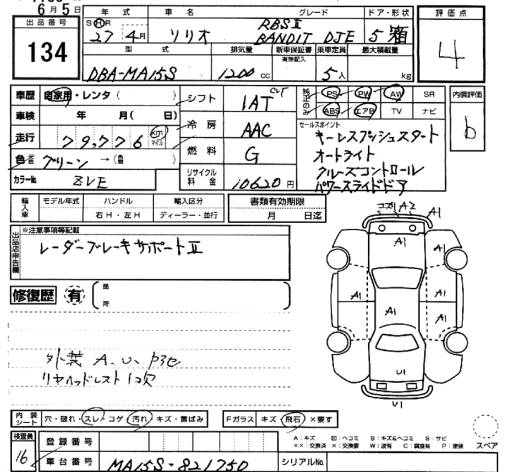 6月5日
出品番号 年式 車名 グレード ドア・形状 評価点
134 S H 27年4月 ソリオ RBSⅡ BANDIT DJE 5 箱 4
型式 排気量 新車保証書 有無記入 乗車定員 最大積載量
DBA-MA15S 1200cc 5人 kg
車歴 自家用・レンタ( ) シフト CVT 1AT 純正のみ PS PW AW SR 内装評価
車検 年 月( 日) 冷房 AAC ABS エアB TV ナビ b
走行 79,776 Km マイル 燃料 G セールスポイント
色名 グリーン→(色 ) リサイクル料金 10620円
カラーNo. ZVE
キーレスプッシュスタート
オートライト
クルーズコントロール
パワースライドドア
輸入車 モデル年式 ハンドル 輸入区分 書類有効期限
右H・左H ディーラー・並行 月 日迄
出品店申告欄 ※注意事項等記載
レーダーブレーキサポートⅡ
修復歴 有 (箇所
コスリ A2
A1 A1
A1 A1
A1
U1
U1
外装 A、U、凹
リヤヘッドレスト1欠
内装シート 穴・破れ・スレ・コゲ 汚れ・キズ・黄ばみ Fガラス キズ・飛石・×要す
A:キズ U:ヘコミ B:キズ&ヘコミ S:サビ
××:交換済 ×:交換 W:波有 C:腐食有 P:塗装 スペア
検査員 16 登録番号
車台番号 MA15S-821750 シリアルNo.